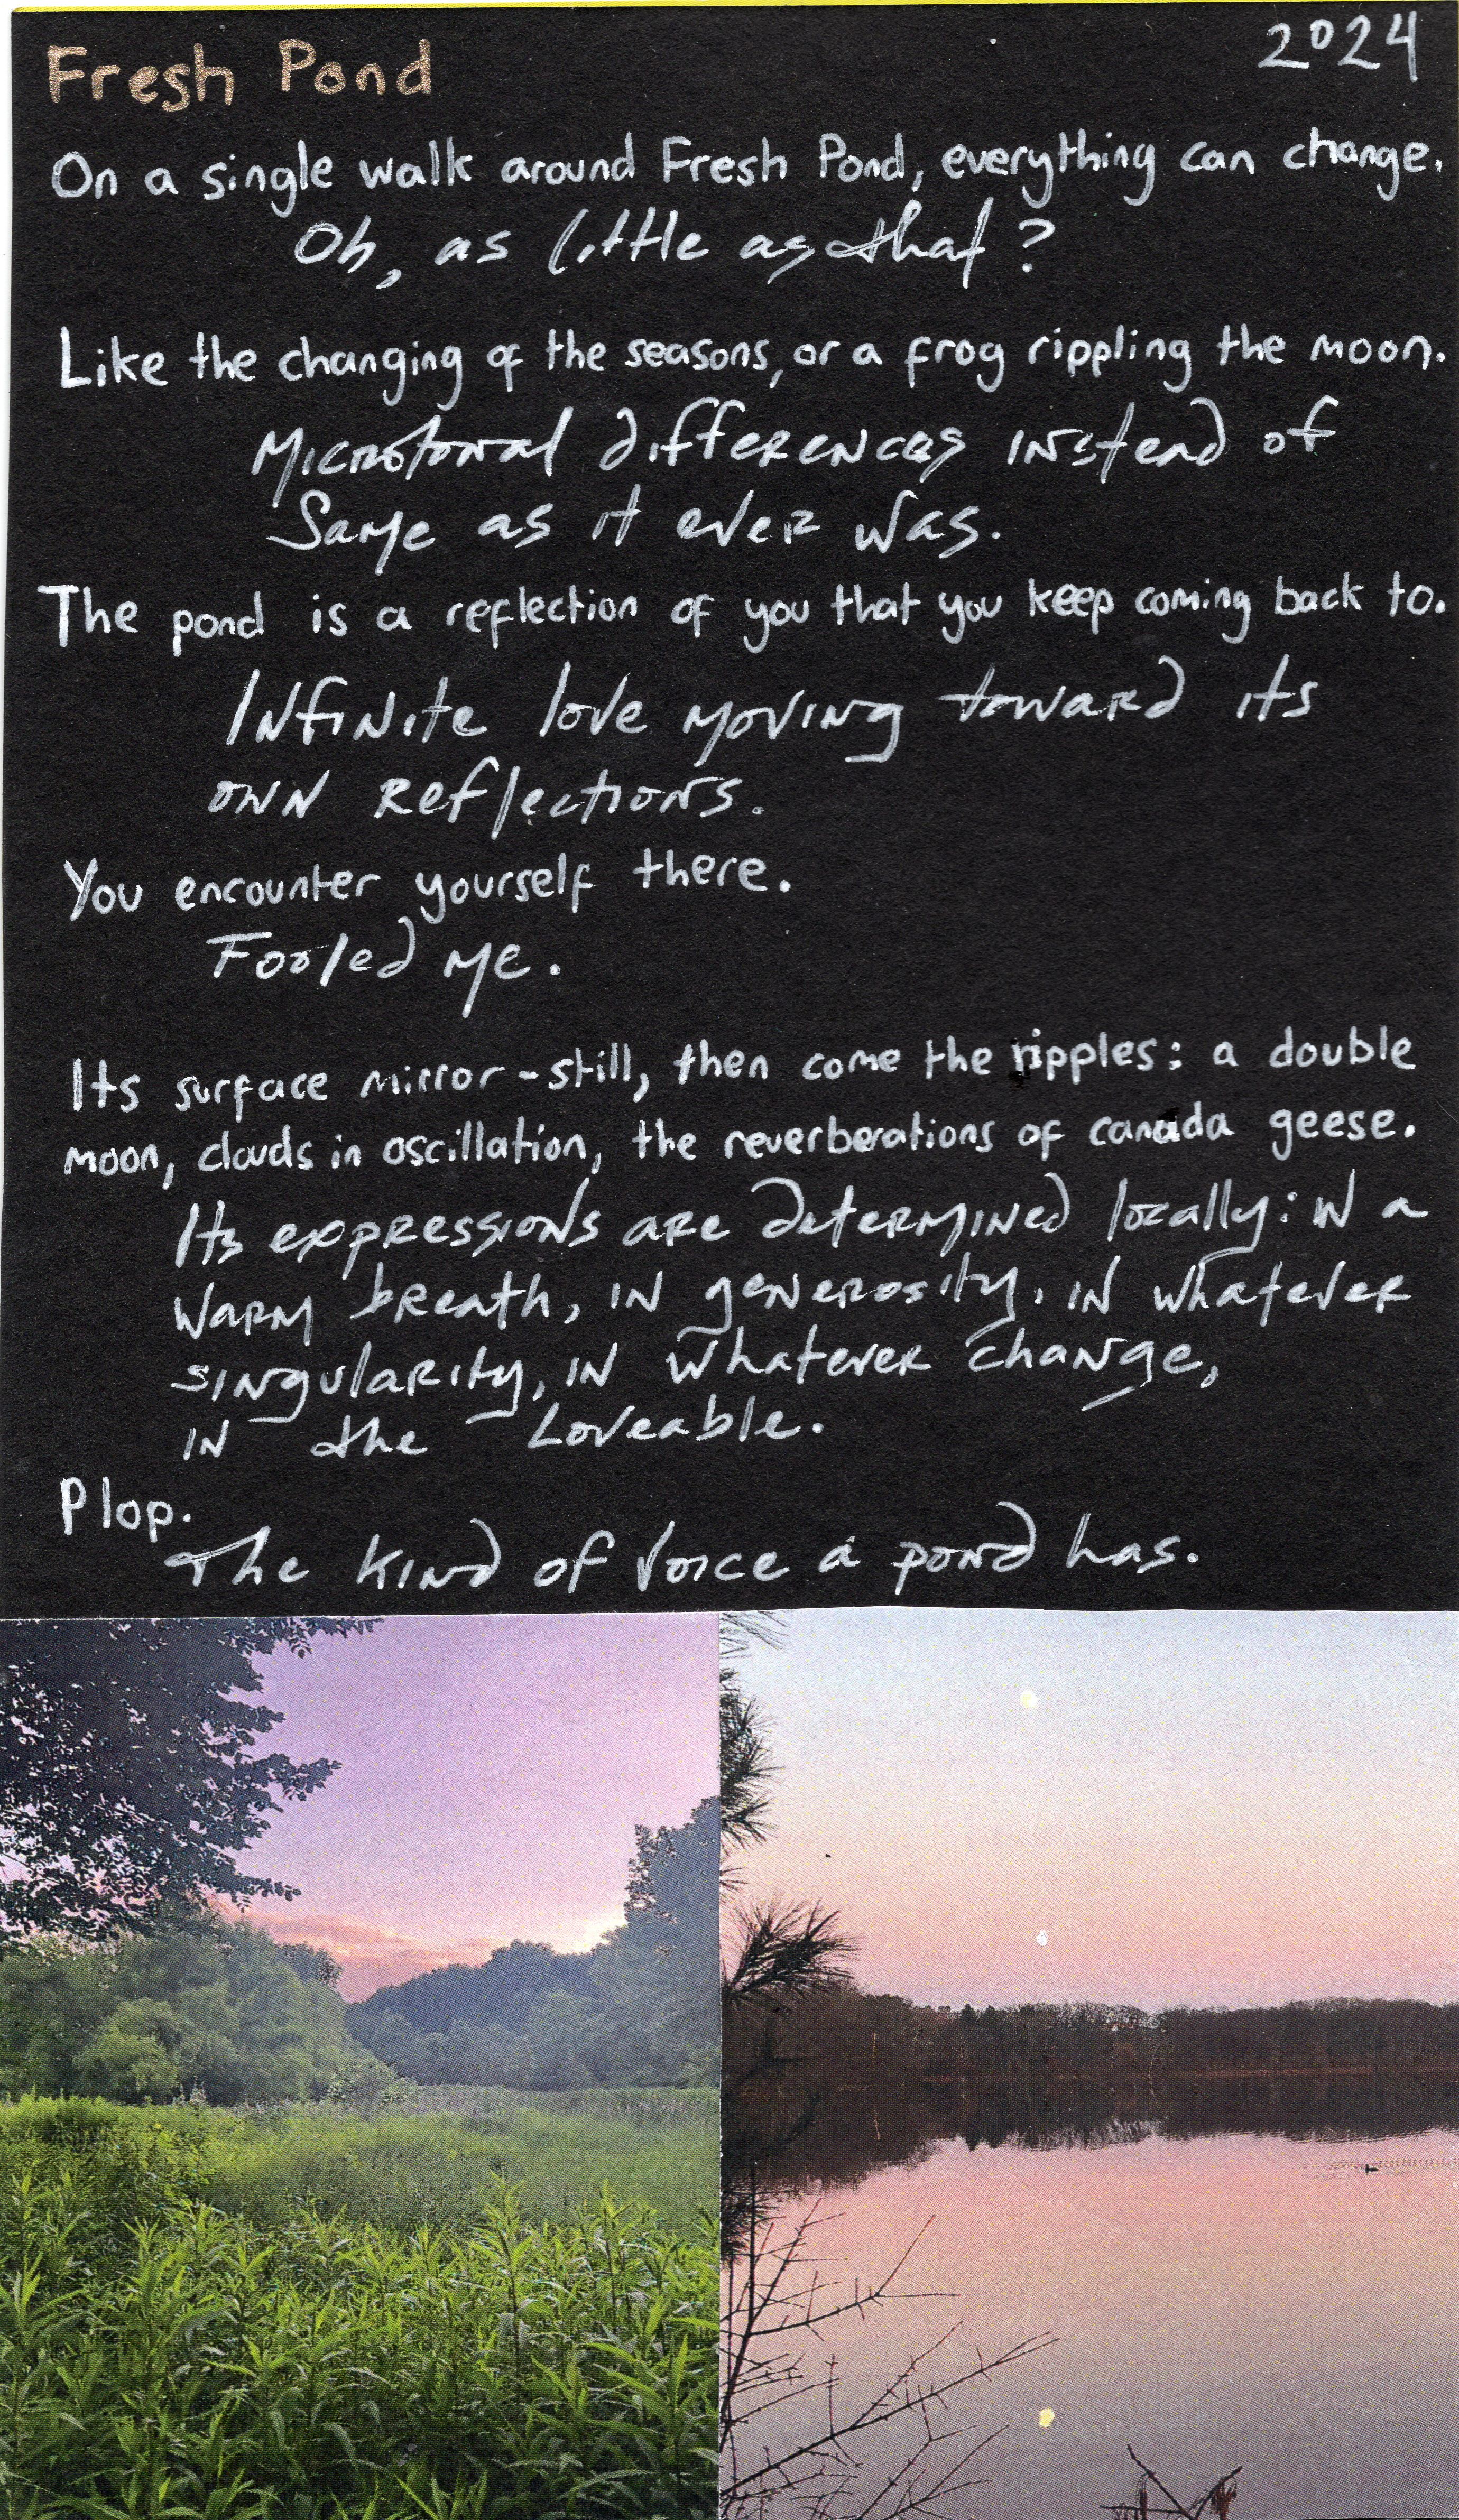 Fresh Pond
2024
On a single walk around Fresh Pond, everything can change.
Oh, as little as that?
Like the changing of the seasons, or a frog rippling the moon.
Microtonal differences instead of
Same as it ever was.
The pond is a reflection of you that you keep coming back to.
Infinite love moving toward its
own reflections.
You encounter yourself there.
Fooled me.
Its surface mirror-still, then come the ripples: a double
moon, clouds in oscillation, the reverberations of canada geese.
Its expressions are determined locally: in a
warm breath, in generosity, in whatever
singularity, in whatever change,
in the Loveable.
Plop.
The kind of voice a pond has.